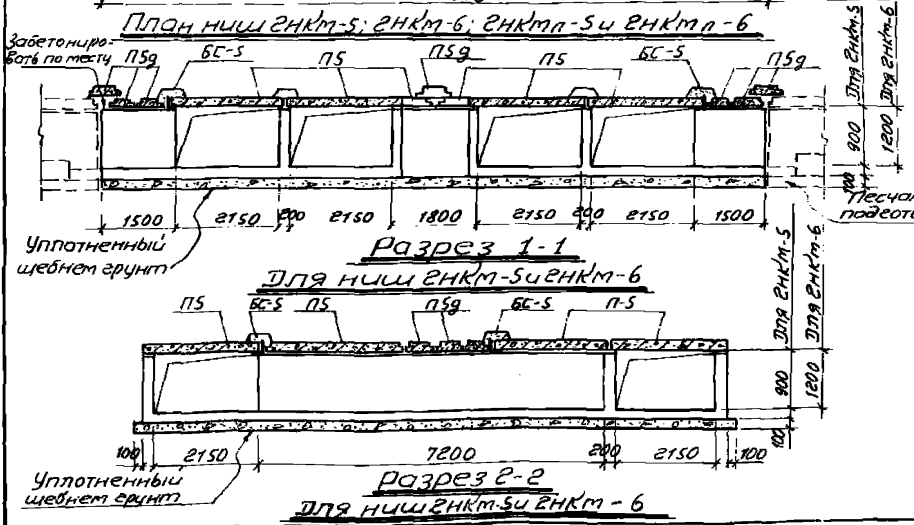 План ниш 2нкт-5; 2нкт-6; 2нктл-5 и 2нктл-6
Забетониро-
вать по месту
П5д БС-5 П5 П5д П5 БС-5 П5д
Для 2нкт-5
Для 2нкт-6
900 1200
100
1500 2150 200 2150 1800 2150 200 2150 1500
Уплотненный
щебнем грунт
Разрез 1-1
Для ниш 2нкт-5 и 2нкт-6
П5 БС-5 П5 П5д БС-5 П-5
Для 2нкт-5
Для 2нкт-6
900 1200
100
100 2150 7200 200 2150 100
Уплотненный
щебнем грунт
Разрез 2-2
Для ниш 2нкт-5 и 2нкт-6